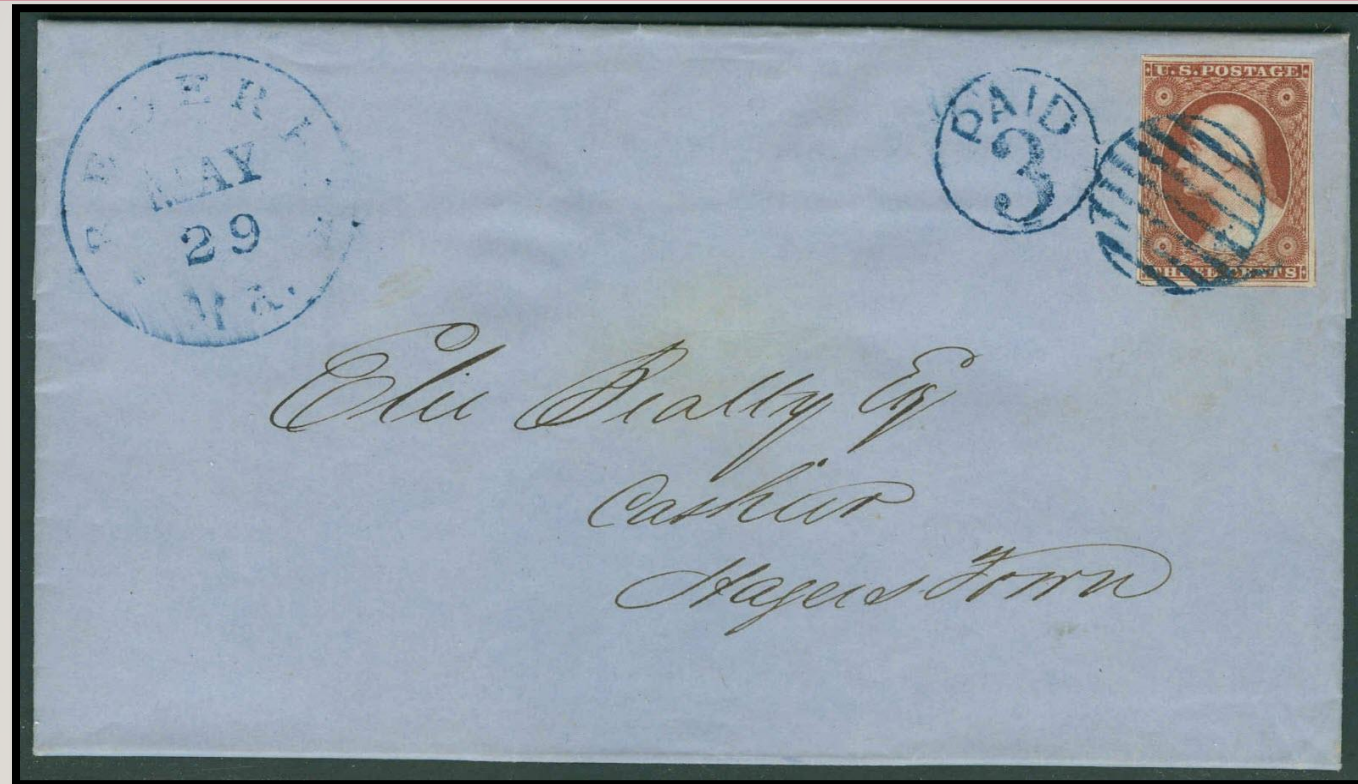 MAY
29
Va.
PAID
3
U.S. POSTAGE
THREE CENTS
Elie Beatty Esq
Cashier
Hagers Town